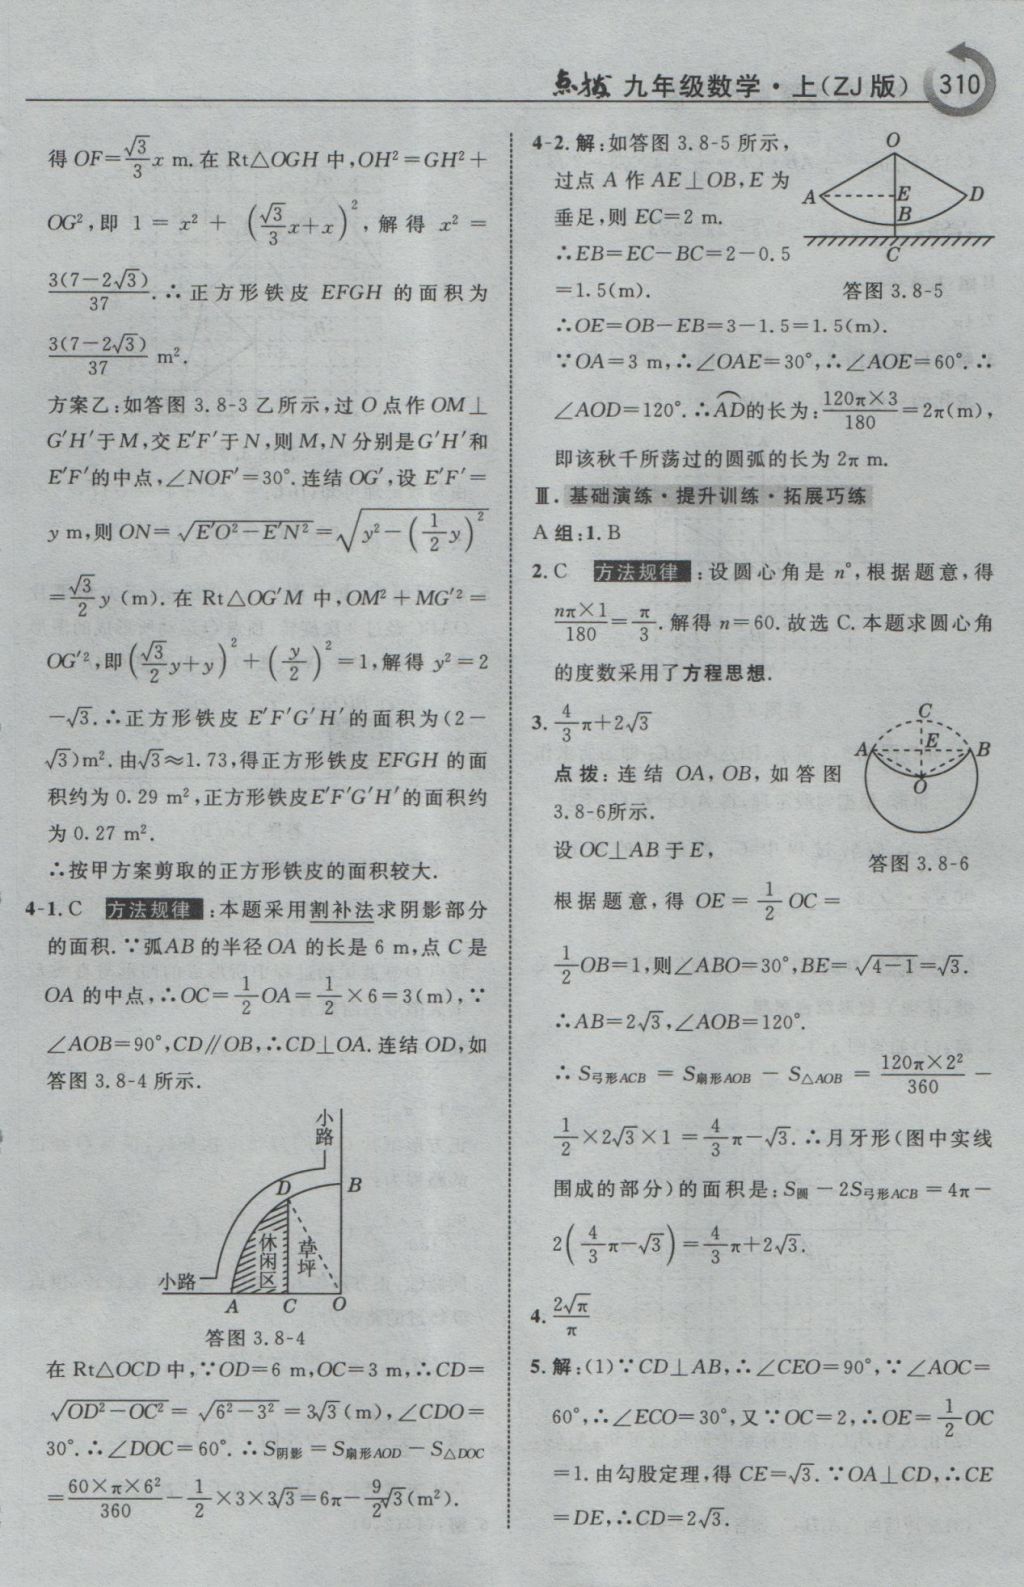 点拨 九年级数学·上(ZJ版) 310
得OF=√3/3 x m.在Rt△OGH中,OH²=GH²+
OG²,即 1 = x² + (√3/3 x+x)²,解得 x² =
3(7-2√3)/37.∴正方形铁皮 EFGH 的面积为
3(7-2√3)/37 m².
方案乙:如答图3.8-3乙所示,过O点作OM⊥
G′H′于M,交E′F′于N,则M,N分别是G′H′和
E′F′的中点,∠NOF′=30°.连结OG′,设E′F′=
y m,则ON=√(E′O²-E′N²)=√(y²-(1/2 y)²)
=√3/2 y (m).在Rt△OG′M中,OM²+MG′²=
OG′²,即(√3/2 y+y)²+(y/2)²=1,解得y²=2
-√3.∴正方形铁皮E′F′G′H′的面积为(2-
√3)m².由√3≈1.73,得正方形铁皮EFGH的面
积约为0.29 m²,正方形铁皮E′F′G′H′的面积约
为0.27 m².
∴按甲方案剪取的正方形铁皮的面积较大.
4-1.C 方法规律:本题采用割补法求阴影部分
的面积.∵弧AB的半径OA的长是6 m,点C是
OA的中点,∴OC=1/2 OA=1/2×6=3(m),∵
∠AOB=90°,CD∥OB,∴CD⊥OA.连结OD,如
答图3.8-4所示.
小路
D
B
休闲区
草坪
小路
A C O
答图3.8-4
在Rt△OCD中,∵OD=6 m,OC=3 m,∴CD=
√(OD²-OC²)=√(6²-3²)=3√3(m),∠CDO=
30°.∴∠DOC=60°.∴S阴影=S扇形AOD-S△DOC
=60×π×6²/360-1/2×3×3√3=6π-9/2√3(m²).
4-2.解:如答图3.8-5所示,
过点A作AE⊥OB,E为
垂足,则EC=2 m.
∴EB=EC-BC=2-0.5
=1.5(m).
O
A E D
B
C
答图3.8-5
∴OE=OB-EB=3-1.5=1.5(m).
∵OA=3 m,∴∠OAE=30°,∴∠AOE=60°.∴
∠AOD=120°.∴A͡D的长为:120π×3/180=2π(m),
即该秋千所荡过的圆弧的长为2π m.
Ⅲ.基础演练·提升训练·拓展巧练
A组:1.B
2.C 方法规律:设圆心角是n°,根据题意,得
nπ×1/180=π/3.解得n=60.故选C.本题求圆心角
的度数采用了方程思想.
3.4/3π+2√3
点拨:连结OA,OB,如答图
3.8-6所示.
设OC⊥AB于E,
C
A E B
O
答图3.8-6
根据题意,得OE=1/2 OC=
1/2 OB=1,则∠ABO=30°,BE=√(4-1)=√3.
∴AB=2√3,∠AOB=120°.
∴S弓形ACB=S扇形AOB-S△AOB=120π×2²/360-
1/2×2√3×1=4/3π-√3.∴月牙形(图中实线
围成的部分)的面积是:S圆-2S弓形ACB=4π-
2(4/3π-√3)=4/3π+2√3.
4.2√π/π
5.解:(1)∵CD⊥AB,∴∠CEO=90°,∵∠AOC=
60°,∴∠ECO=30°,又∵OC=2,∴OE=1/2 OC
=1.由勾股定理,得CE=√3.∵OA⊥CD,∴CE
=DE,∴CD=2√3.